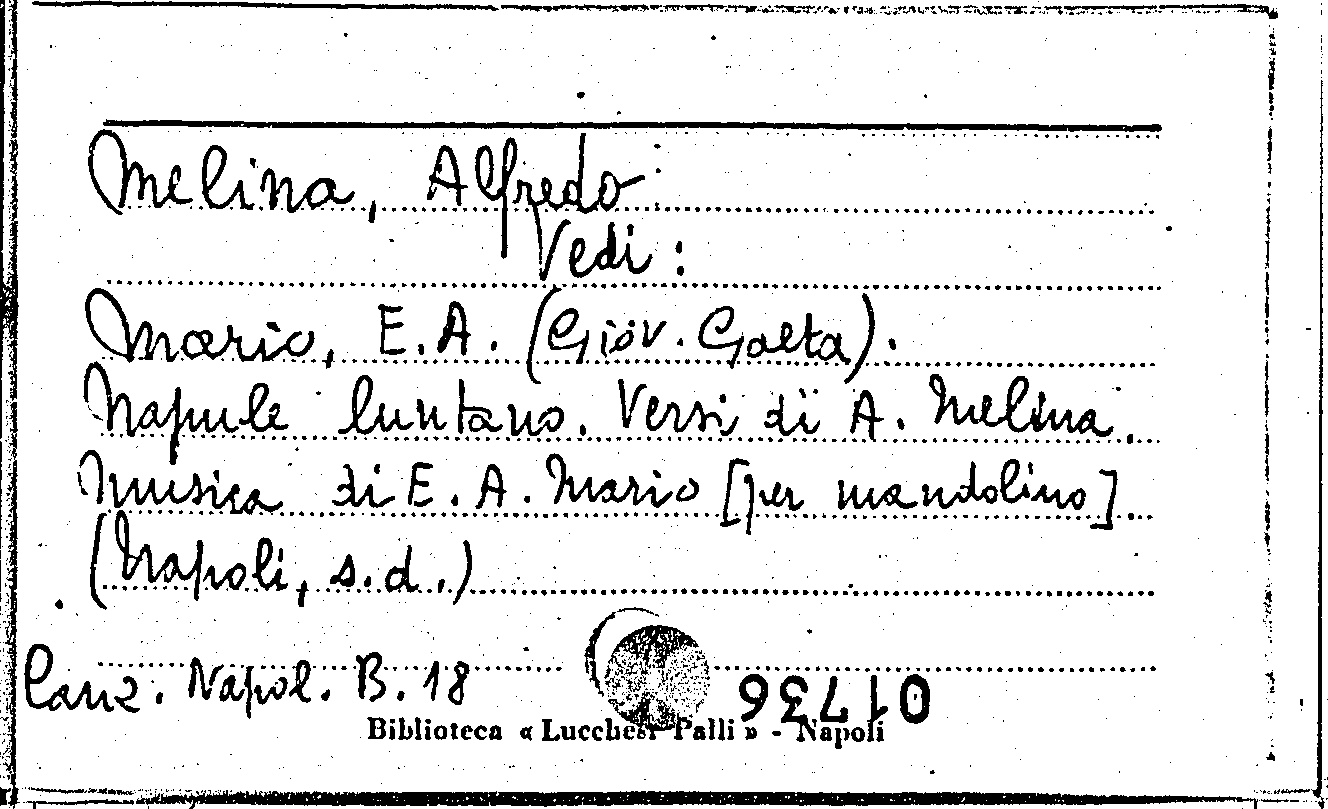 Melina, Alfredo
Vedi:
Mario, E.A. (Giov. Gaeta).
Napule luntano. Versi di A. Melina.
Musica di E.A. Mario [per mandolino].
(Napoli, s.d.)
Canz. Napol. B. 18
01736
Biblioteca « Lucchesi Palli » - Napoli